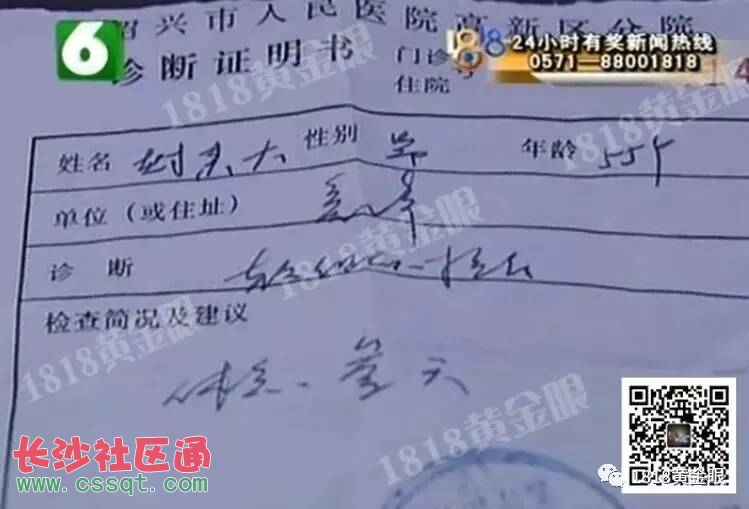 绍兴市人民医院高新区分院
6
诊断证明书
门诊号
住院
1818
24小时有奖新闻热线
0571—88001818
1818黄金眼
姓名
性别
男
年龄
55岁
单位(或住址)
诊断
检查简况及建议
1818黄金眼
休息
1818黄金眼
1818黄金眼
长沙社区通
www.cssqt.com
1818黄金眼